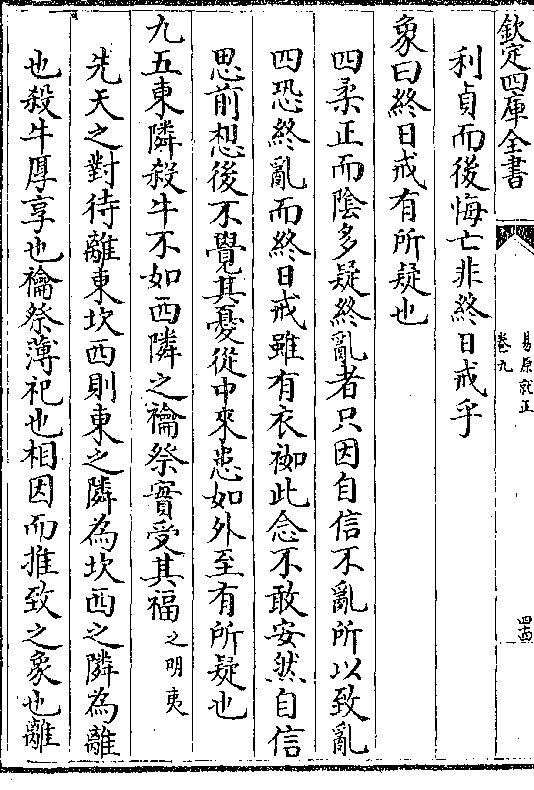 欽定四庫全書
易原就正
卷九
四十四
利貞而後悔亡非終日戒乎
象曰終日戒有所疑也
四柔正而陰多疑終亂者只因自信不亂所以致亂
四恐終亂而終日戒雖有衣袽此念不敢安然自信
思前想後不覺其憂從中來患如外至有所疑也
九五東隣殺牛不如西隣之禴祭實受其福之明夷
先天之對待離東坎西則東之隣為坎西之隣為離
也殺牛厚享也禴祭薄祀也相因而推致之象也離